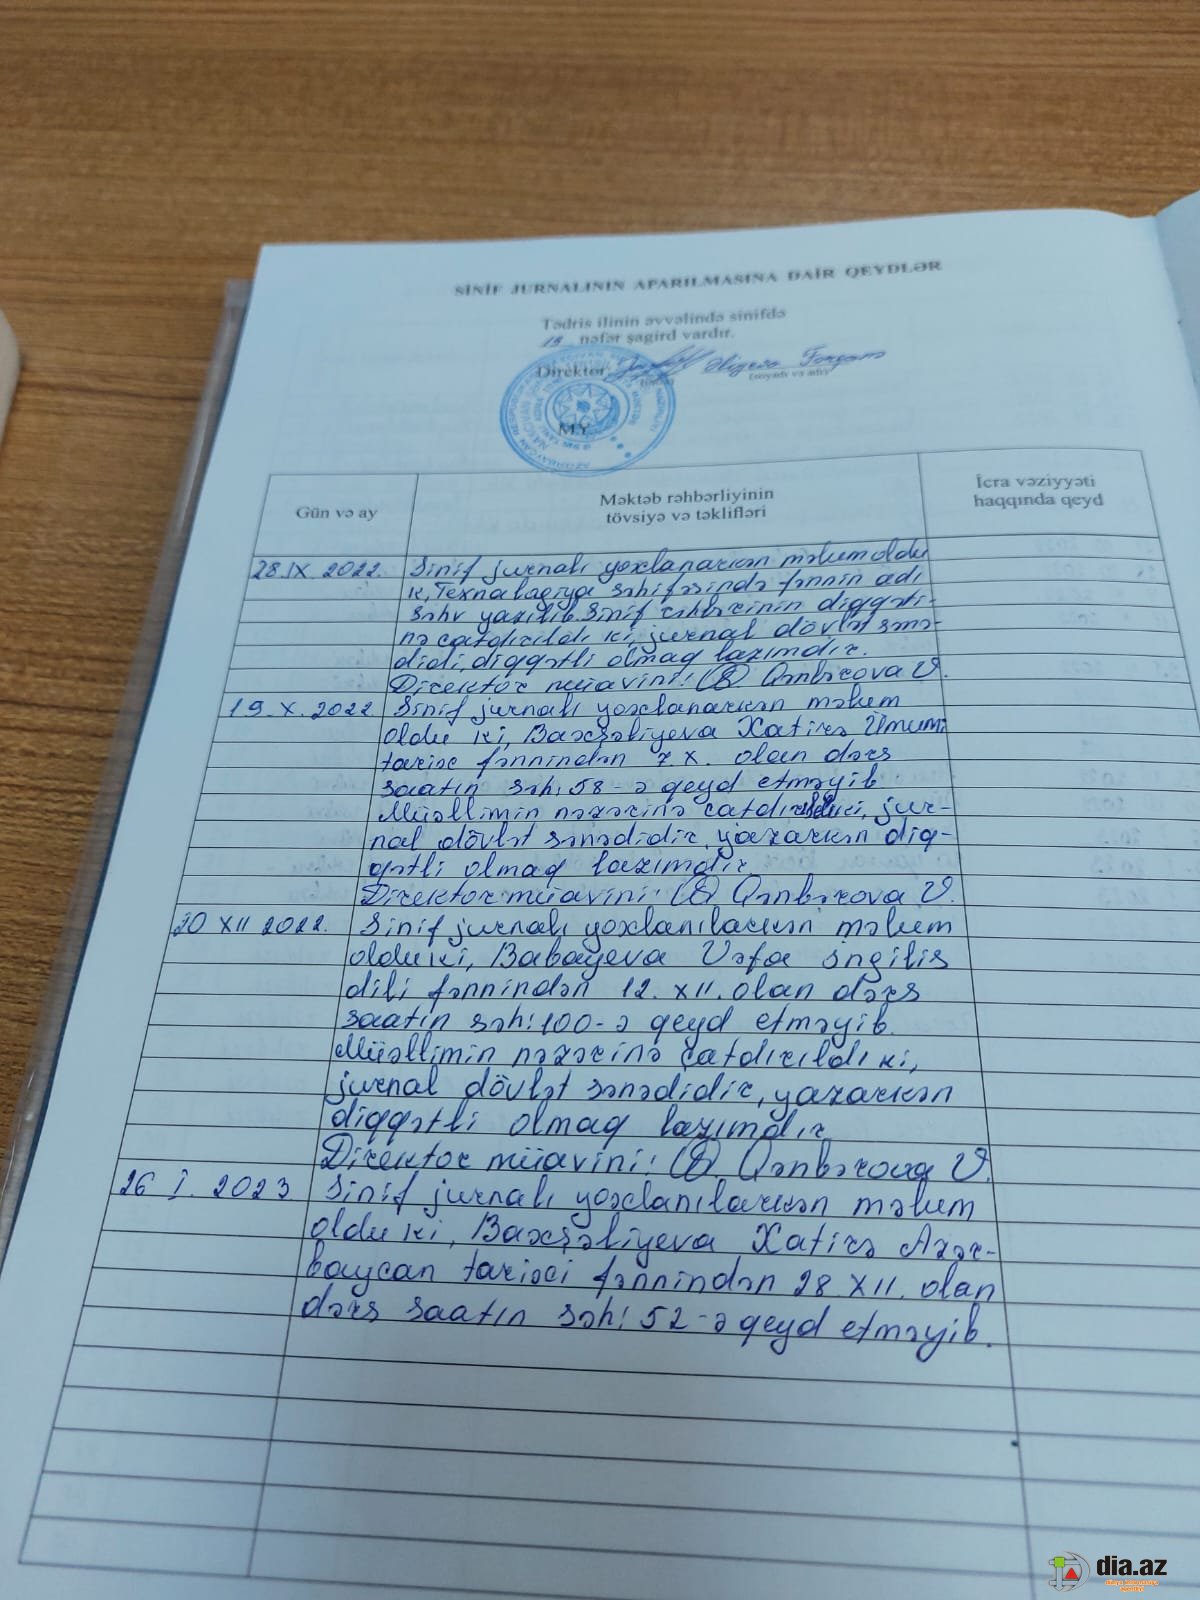 SİNİF JURNALININ APARILMASINA DAİR QEYDLƏR
Tədris ilinin əvvəlində sinifdə
nəfər şagird vardır.
Direktor: Əliyeva
(imza) (soyadı və adı)
M.Y.
Gün və ay
Məktəb rəhbərliyinin
tövsiyə və təklifləri
İcra vəziyyəti
haqqında qeyd
28.IX.2022. Sinif jurnalı yoxlanarkən məlum oldu
ki, Texnalogiya səhifəsində fənnin adı
səhv yazılıb. Sinif rəhbərinin diqqəti-
nə çatdırıldı ki, jurnal dövlət sənə-
didi, diqqətli olmaq lazımdır.
Direktor müavini: Qənbərova V.
19.X.2022. Sinif jurnalı yoxlanarkən məlum
oldu ki, Baxşəliyeva Xatirə Ümumi
tarix fənnindən 7.X. olan dərs
saatın səh: 58-ə qeyd etməyib.
Müəllimin nəzərinə çatdırıldı ki, jur-
nal dövlət sənədidir, yazarkən diq-
qətli olmaq lazımdır.
Direktor müavini: Qənbərova V.
20 XII 2022. Sinif jurnalı yoxlanılarkən məlum
oldu ki, Babayeva Vəfa İngilis
dili fənnindən 12.XII. olan dərs
saatın səh: 100-ə qeyd etməyib.
Müəllimin nəzərinə çatdırıldı ki,
jurnal dövlət sənədidir, yazarkən
diqqətli olmaq lazımdır
Direktor müavini: Qənbərova V.
26 I. 2023 Sinif jurnalı yoxlanılarkən məlum
oldu ki, Baxşəliyeva Xatirə Azər-
baycan tarixi fənnindən 28 XII. olan
dərs saatın səh: 52-ə qeyd etməyib.
dia.az